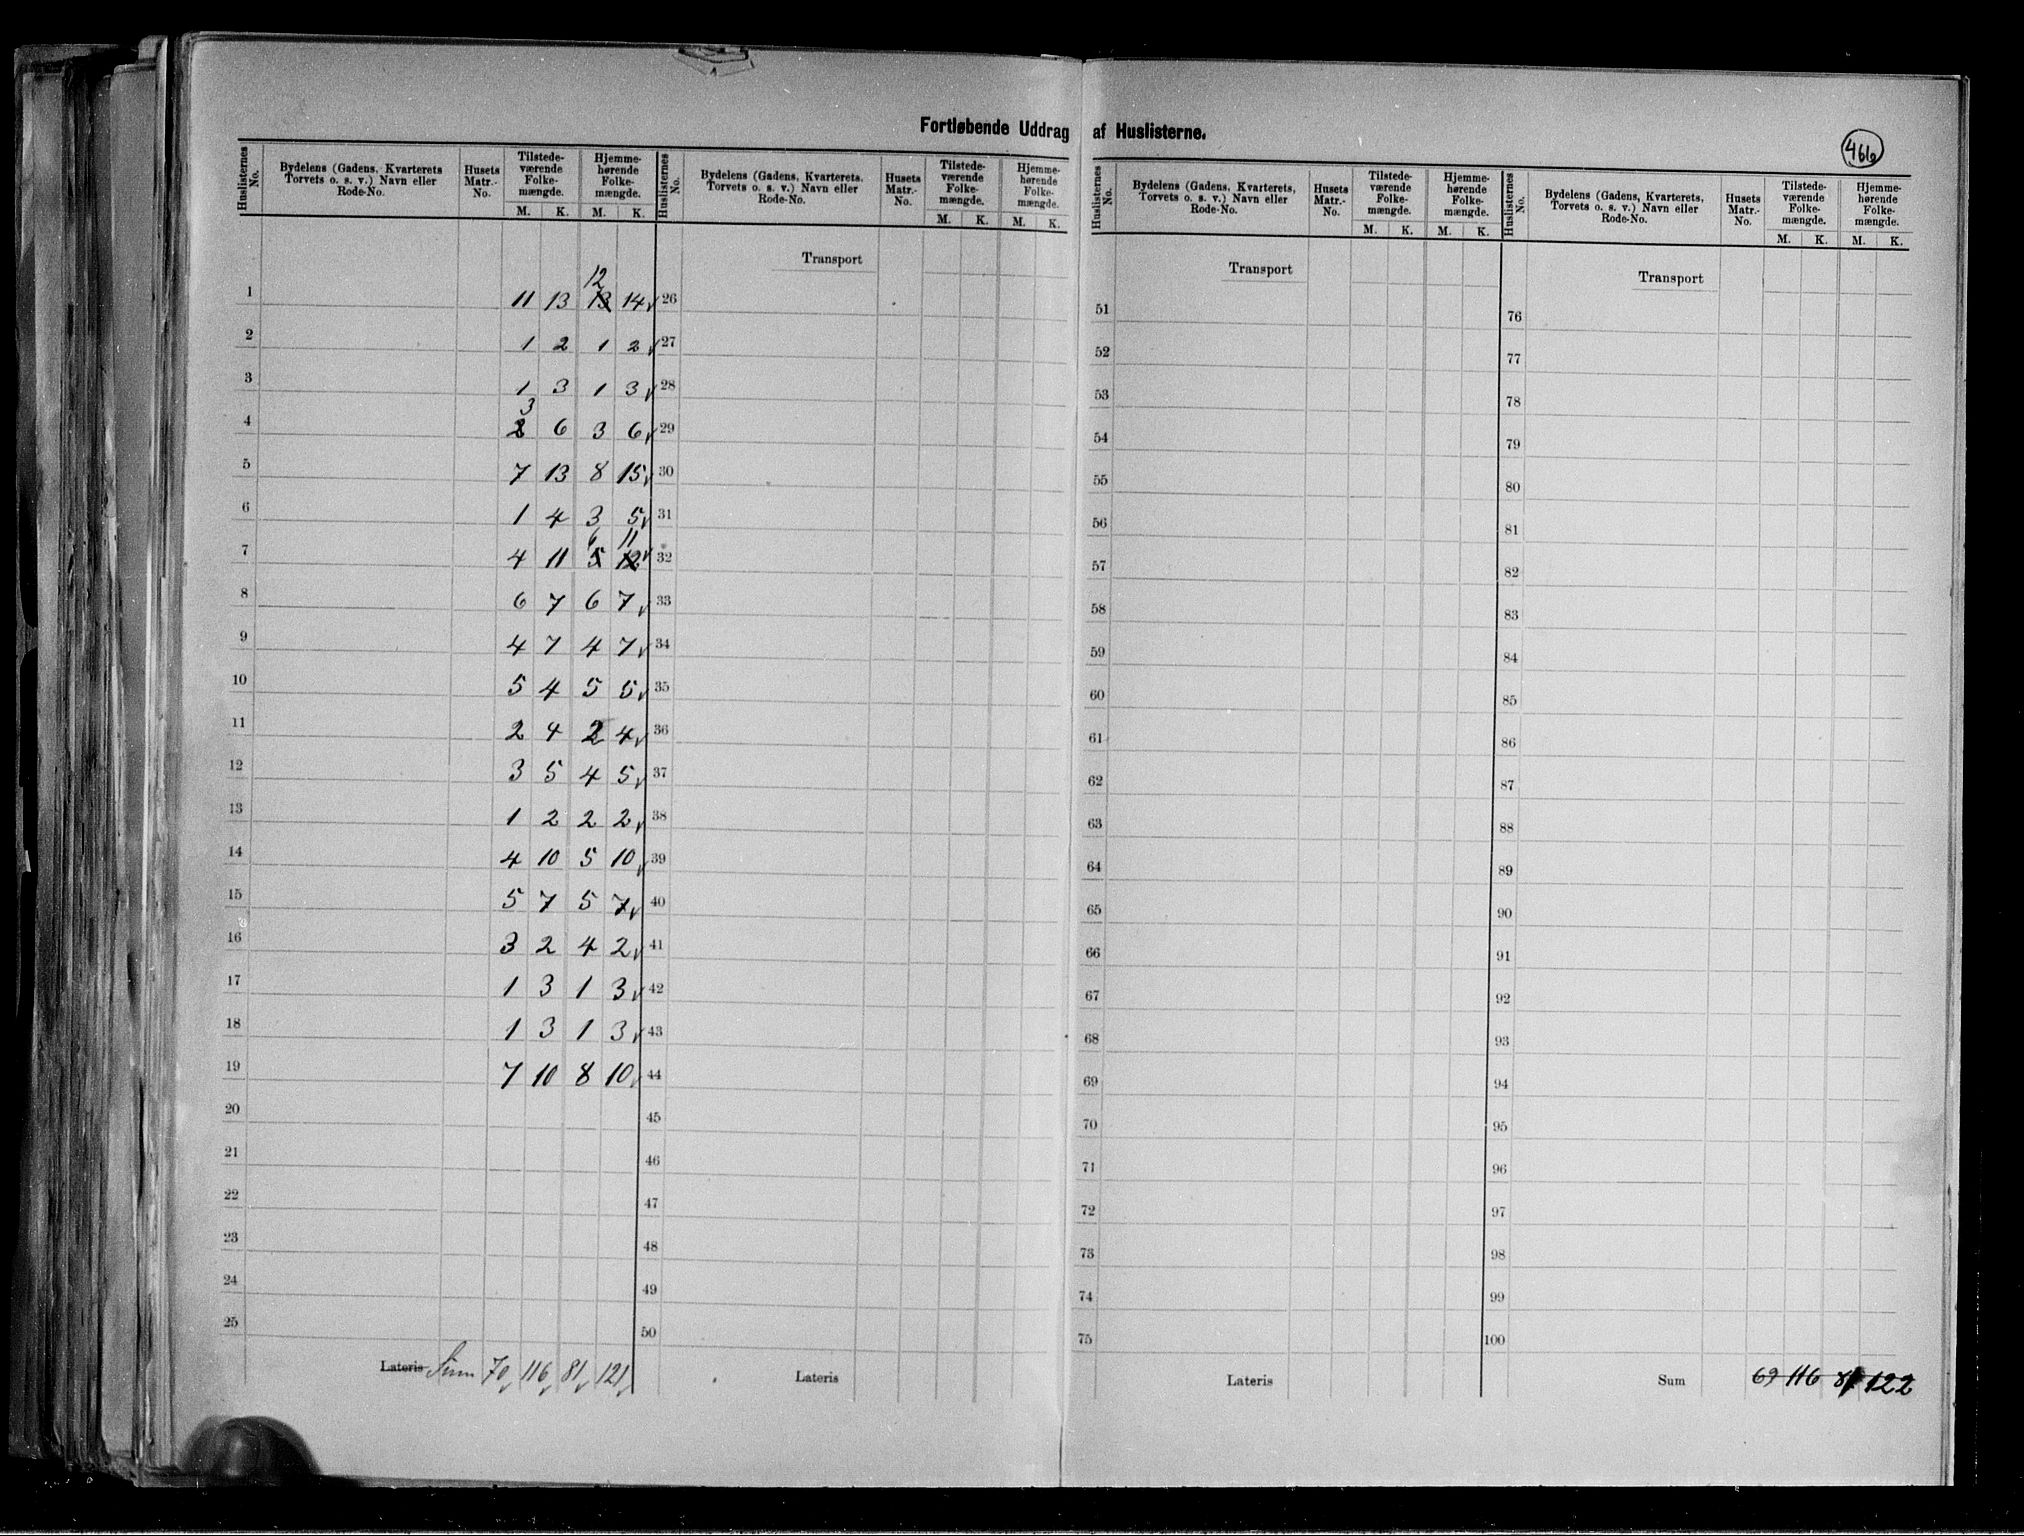 Fortløbende Uddrag af Huslisterne.
466
Huslisternes No. | Bydelens (Gadens, Kvarterets Torvets o. s. v.) Navn eller Rode-No. | Husets Matr.-No. | Tilstedeværende Folkemængde. M. K. | Hjemmehørende Folkemængde. M. K.
Huslisternes No. | Bydelens (Gadens, Kvarterets, Torvets o. s. v.) Navn eller Rode-No. | Husets Matr.-No. | Tilstedeværende Folkemængde. M. K. | Hjemmehørende Folkemængde. M. K.
Huslisternes No. | Bydelens (Gadens, Kvarterets, Torvets o. s. v.) Navn eller Rode-No. | Husets Matr.-No. | Tilstedeværende Folkemængde. M. K. | Hjemmehørende Folkemængde. M. K.
Huslisternes No. | Bydelens (Gadens, Kvarterets, Torvets o. s. v.) Navn eller Rode-No. | Husets Matr.-No. | Tilstedeværende Folkemængde. M. K. | Hjemmehørende Folkemængde. M. K.
12
1 11 13 13 14
2 1 2 1 2
3 1 3 1 3
3
4 2 6 3 6
5 7 13 8 15
6 1 4 3 5
6 11
7 4 11 5 12
8 6 7 6 7
9 4 7 4 7
10 5 4 5 5
11 2 4 2 4
12 3 5 4 5
13 1 2 2 2
14 4 10 5 10
15 5 7 5 7
16 3 2 4 2
17 1 3 1 3
18 1 3 1 3
19 7 10 8 10
20
21
22
23
24
25
Lateris Sum 70 116 81 121
Transport
26
27
28
29
30
31
32
33
34
35
36
37
38
39
40
41
42
43
44
45
46
47
48
49
50
Lateris
Transport
51
52
53
54
55
56
57
58
59
60
61
62
63
64
65
66
67
68
69
70
71
72
73
74
75
Lateris
Transport
76
77
78
79
80
81
82
83
84
85
86
87
88
89
90
91
92
93
94
95
96
97
98
99
100
Sum 69 116 81 122